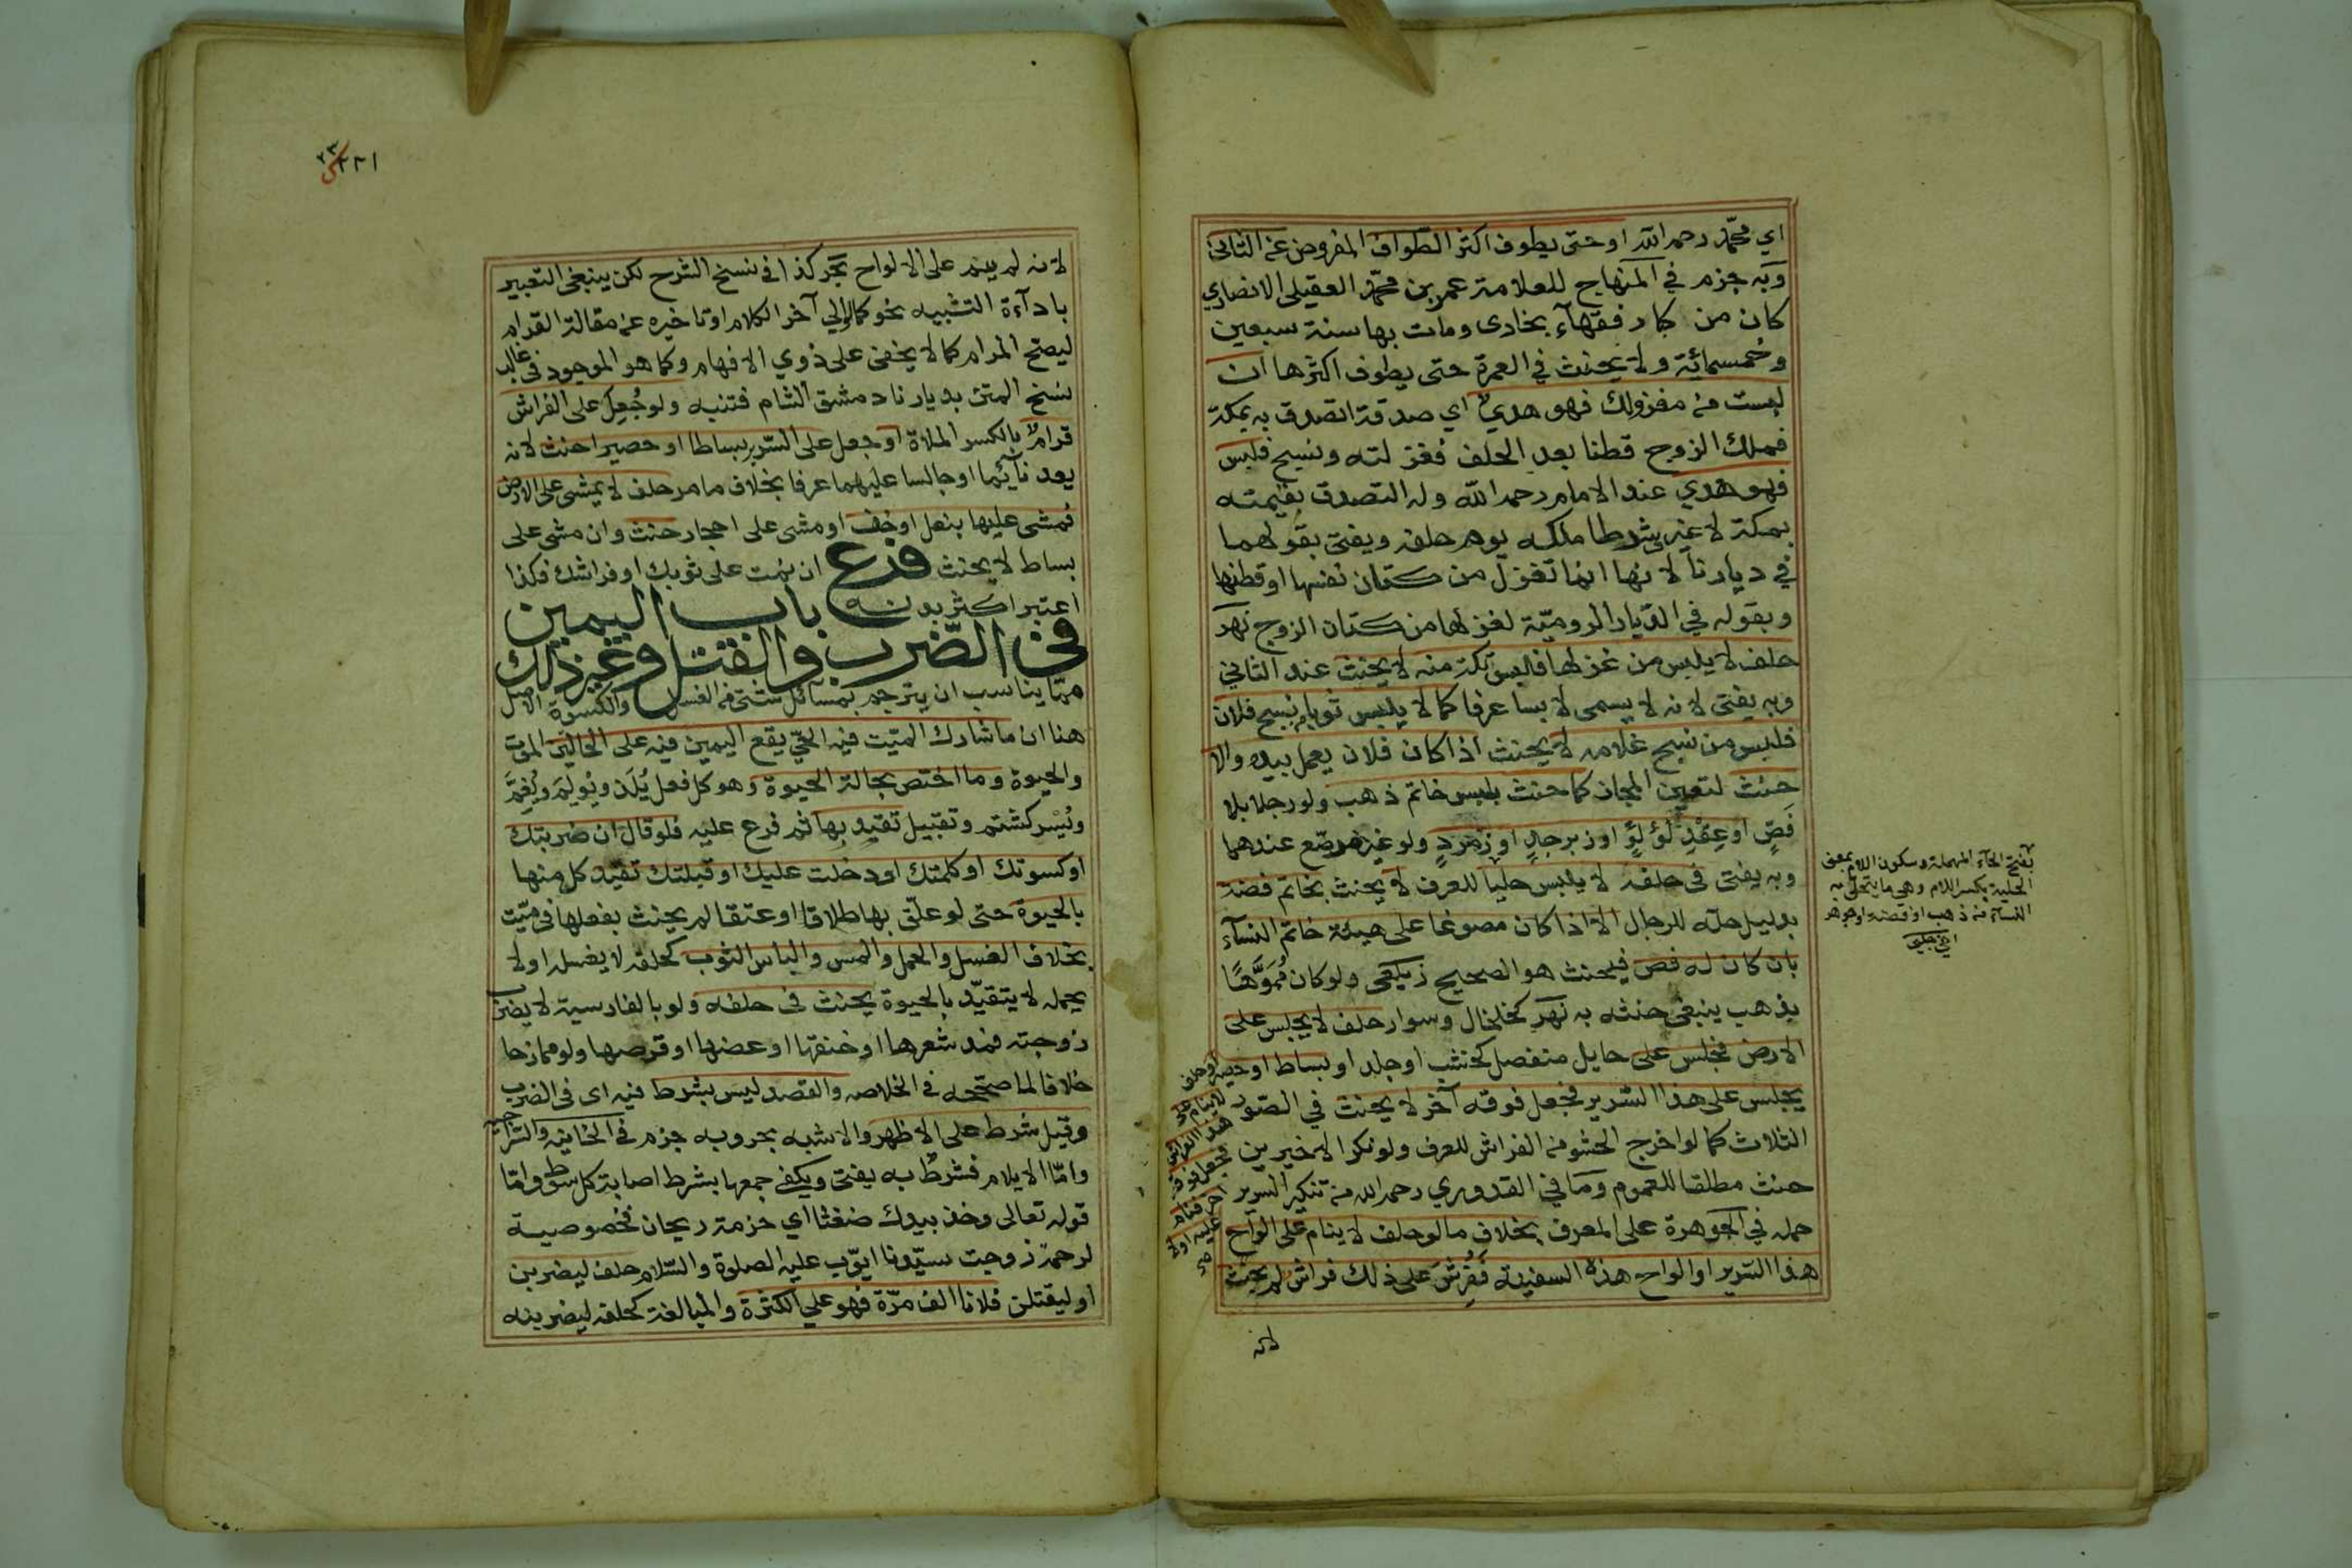 اي محمد رحمه الله او حتى يطوف اكثر الطواف المفروض عن الثاني
وبه جزم في المنهاج للعلامة عمر بن محمد العقيلي الانصاري
كان من كبار فقهآء بخارى ومات بها سنة سبعين
وخمسمائة ولا يحنث في العمرة حتى يطوف اكثرها ان
لبست من مغزولك فهو هدي اي صدقة اتصدق به بمكة
فملك الزوج قطنا بعد الحلف فغزلته ونسج فلبس
فهو هدي عند الامام رحمه الله وله التصدق بقيمته
بمكة لا غير شرطا ملكه يوم حلف ويفتى بقولهما
في ديارنا لانها انما تغزل من كتان نفسها او قطنها
وبقوله في الديار الرومية لغزلها من كتان الزوج نهر
حلف لا يلبس من غزلها فلبس تكة منه لا يحنث عند الثاني
وبه يفتى لانه لا يسمى لابسا عرفا كما لا يلبس ثوبا من نسج فلان
فلبس من نسج غلامه لا يحنث اذا كان فلان يعمل بيده والا
حنث لتعين المجاز كما حنث بلبس خاتم ذهب ولو رجلا بلا
فَصٍّ او عِقْدِ لؤلؤٍ او زبرجدٍ او زمردٍ ولو غير مرصّع عندهما
وبه يفتى في حلفه لا يلبس حليا للعرف لا يحنث بخاتم فضة
بدليل حلّه للرجال الا اذا كان مصوغا على هيئة خاتم النسآء
بان كان له فص فيحنث هو الصحيح زيلعي ولو كان مُمَوَّهًا
بذهب ينبغي حنثه به نهر كخلخال وسوار حلف لا يجلس على
الارض فجلس على حايل منفصل كخشب او جلد او بساط او حصير او حلف
لا ينام على
هذا الفراش
فجعل فوقه
اخر فنام
عليه او لا
يجلس على هذا السرير فجعل فوقه آخر لا يحنث في الصور
الثلاث كما لو اخرج الحشو من الفراش للعرف ولو نكر الاخيرين
حنث مطلقا للعموم وما في القدوري رحمه الله من تنكير السرير
حمله في الجوهرة على المعرف بخلاف ما لو حلف لا ينام على الواح
هذا السرير او الواح هذه السفينة فَفُرِشَ على ذلك فراش لم يحنث
لانه
بفتح الحآء المهملة وسكون اللام بمعنى
الحلية بكسر اللام وهي ما يتحلى به
النسآء من ذهب او فضة او جوهر
اخي چلبي
٢٢١
لانه لم ينم على الالواح بحر كذا في نسخ الشرح لكن ينبغي التعبير
باداءة التشبيه نحو كما الى آخر الكلام او تاخيره عن مقالة القرام
ليصح المرام كما لا يخفى على ذوي الافهام وكما هو الموجود في غالب
نسخ المتن بديارنا دمشق الشام فتنبه ولو جُعِل على الفراش
قرام بالكسر الملاة او جعل على السرير بساطا او حصيرا حنث لانه
يعد نآئما او جالسا عليهما عرفا بخلاف ما مر حلف لا يمشى على الارض
فمشى عليها بنعل او خف او مشى على احجار حنث وان مشى على
بساط لا يحنث فرع ان نمت على ثوبك او فراشك فكذا
اعتبر اكثر بدنه باب اليمين
في الضرب والقتل وغير ذلك
مما يناسب ان يترجم بمسآئل شتى من الغسل والكسوة الاصل
هنا ان ما شارك الميّت فيه الحيّ يقع اليمين فيه على الحالين الموت
والحيوة وما اختص بحالة الحيوة وهو كل فعل يُلَذ ويُولِمَ ويُغِمَّ
ويُسر كشتم وتقبيل تقيد بها ثم فرع عليه فلو قال ان ضربتك
او كسوتك او كلمتك او دخلت عليك او قبلتك تقيّد كل منها
بالحيوة حتى لو علّق بها طلاقا او عتقا لم يحنث بفعلها في ميّت
بخلاف الغسل والحمل والمس والباس الثوب كحلفه لا يغسله او لا
يحمله لا يتقيّد بالحيوة يحنث في حلفه ولو بالفارسية لا يضرب
زوجته فمد شعرها او خنقها او عضها او قرصها ولو ممازحا
خلافا لما صححه في الخلاصه والقصد ليس بشرط فيه اى في الضرب
وقيل شرط على الاظهر والاشبه بحر وبه جزم في الخانيه والسراجيه
وامّا الايلام فشرط به يفتى ويكفي جمعها بشرط اصابة كل سوط وامّا
قوله تعالى وخذ بيدك ضغثا اي حزمة ريحان فخصوصية
لرحمة زوجت سيّدنا ايّوب عليه الصلوة والسّلام حلف ليضربن
او ليقتلن فلانا الف مرّة فهو على الكثرة والمبالغة كحلفه ليضربنه